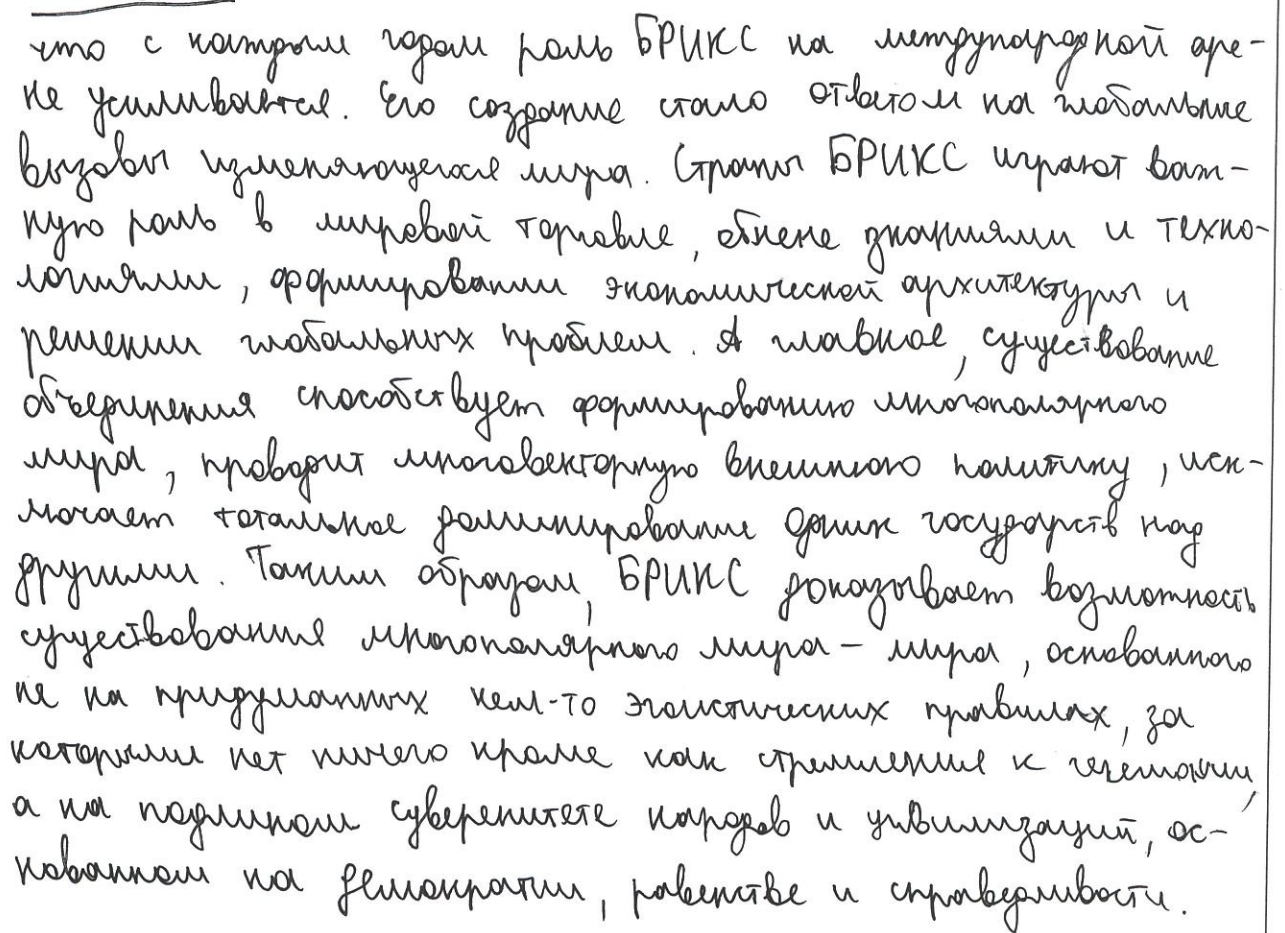 что с каждым годом роль БРИКС на международной аре-
не усиливается. Его создание стало ответом на глобальные
вызовы изменяющегося мира. Страны БРИКС играют важ-
ную роль в мировой торговле, обмене знаниями и техно-
логиями, формировании экономической архитектуры и
решении глобальных проблем. А главное, существование
объединения способствует формированию многополярного
мира, проводит многовекторную внешнюю политику, иск-
лючает тотальное доминирование одних государств над
другими. Таким образом, БРИКС доказывает возможность
существования многополярного мира – мира, основанного
не на придуманных кем-то эгоистических правилах, за
которыми нет ничего кроме как стремления к гегемонии,
а на подлином суверенитете народов и цивилизаций, ос-
нованном на демократии, равенстве и справедливости.